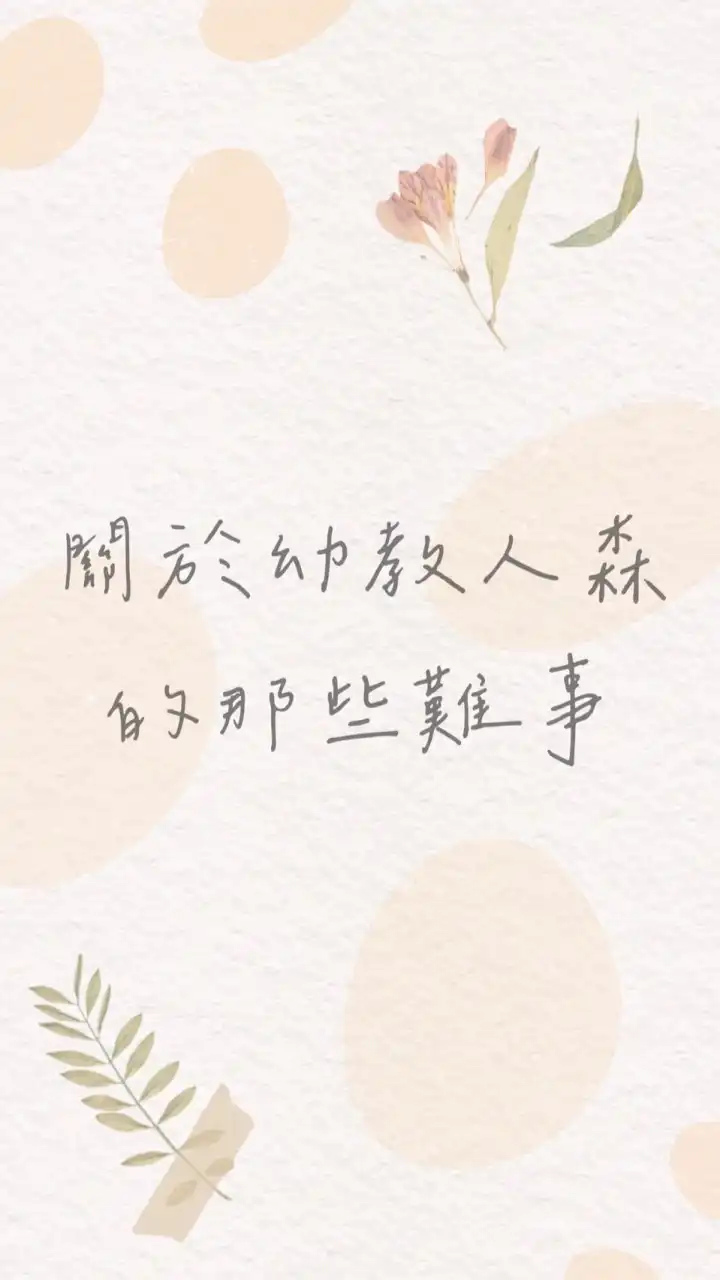 關於幼教人森
的那些難事